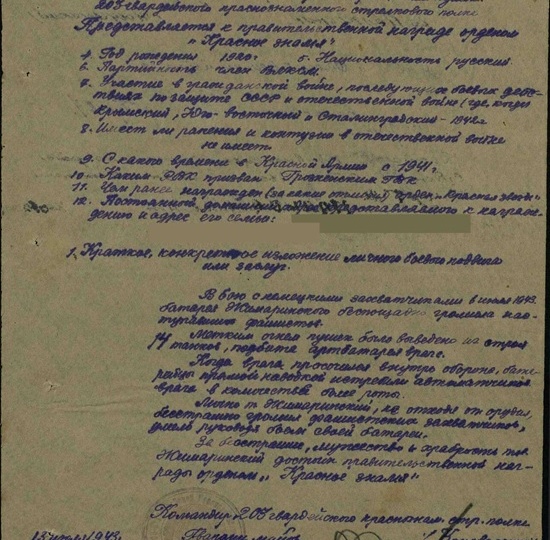 203 гвардейского краснознаменного стрелкового полка
Представляется к правительственной награде орденом
"Красное знамя"
4. Год рождения 1920г 5. Национальность русский
6. Партийность член ВЛКСМ.
7. Участие в гражданской войне, последующих боевых дейс-
твиях по защите СССР и отечественной войне (где, когда
Крымский, Юго-Восточный и Сталинградский - 1942г.
8. Имеет ли ранения и контузии в отечественной войне
не имеет.
9. С какого времени в Красной Армии с 1941г.
10. Каким РВК призван Грозненским ГВК
11. Чем ранее награжден (за какие отличия) орден "Красная звезда"
12. Постоянный домашний представляемого к награж-
дению и адрес его семьи:
1. Краткое, конкретное изложение личного боевого подвига
или заслуг.
В бою с немецкими захватчиками в июле 1943.
батарея Жимаринского беспощадно громила нас-
тупавших фашистов.
Метким огнем пушек было выведено из строя
14 танков, подбита артбатарея врага.
Когда врага просочился внутрь обороны, бата-
рейцы прямой наводкой истребили автоматчиков
врага в количестве более роты.
Лично т. Жимаринский, не отходя от орудия,
бесстрашно громил фашистских захватчиков,
умело руководя боем своей батареи.
За бесстрашие, мужество и храбрость тов.
Жимаринский достоин правительственной наг-
рады орденом "Красное знамя"
Командир 203 гвардейского краснознам. стр. полка
Гвардии майор
июля 1943г.